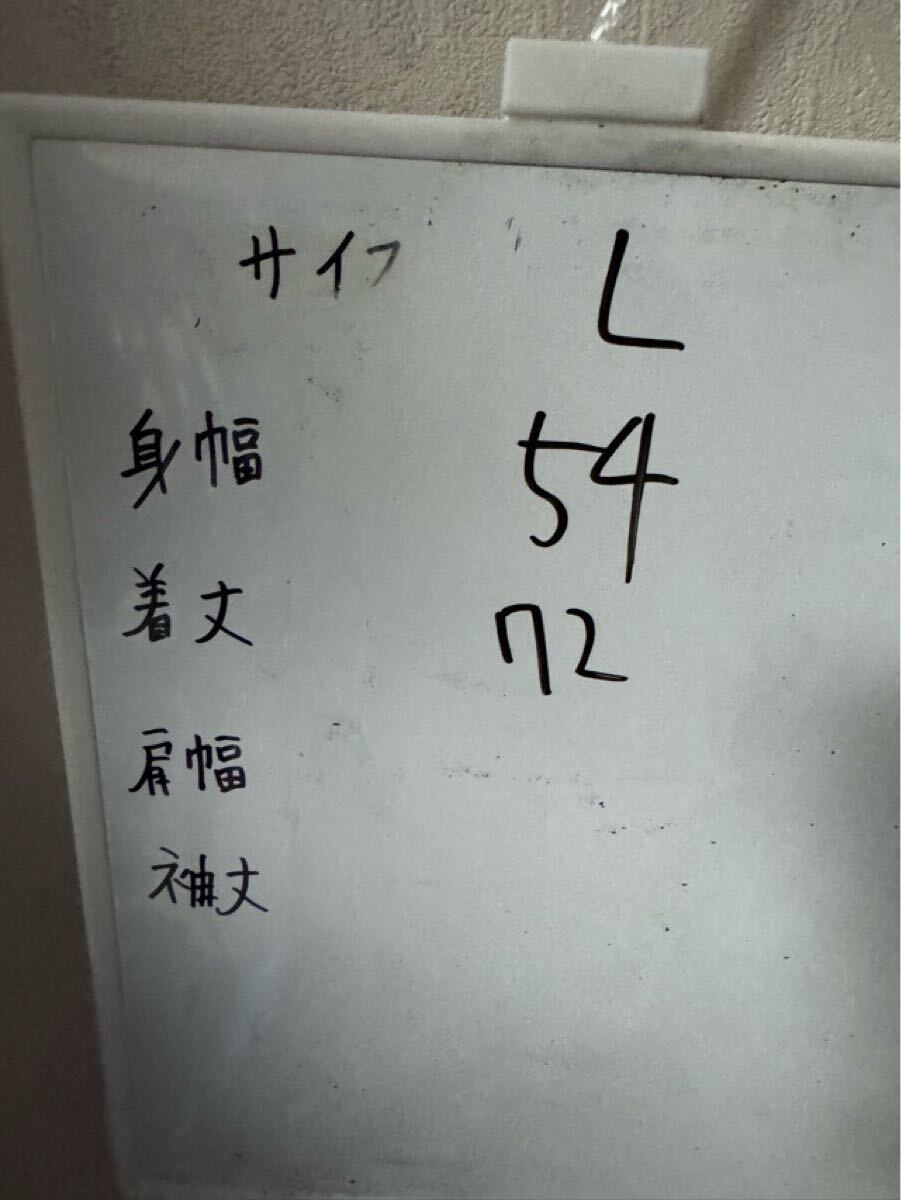 サイフ L
身幅 54
着丈 72
肩幅
袖丈